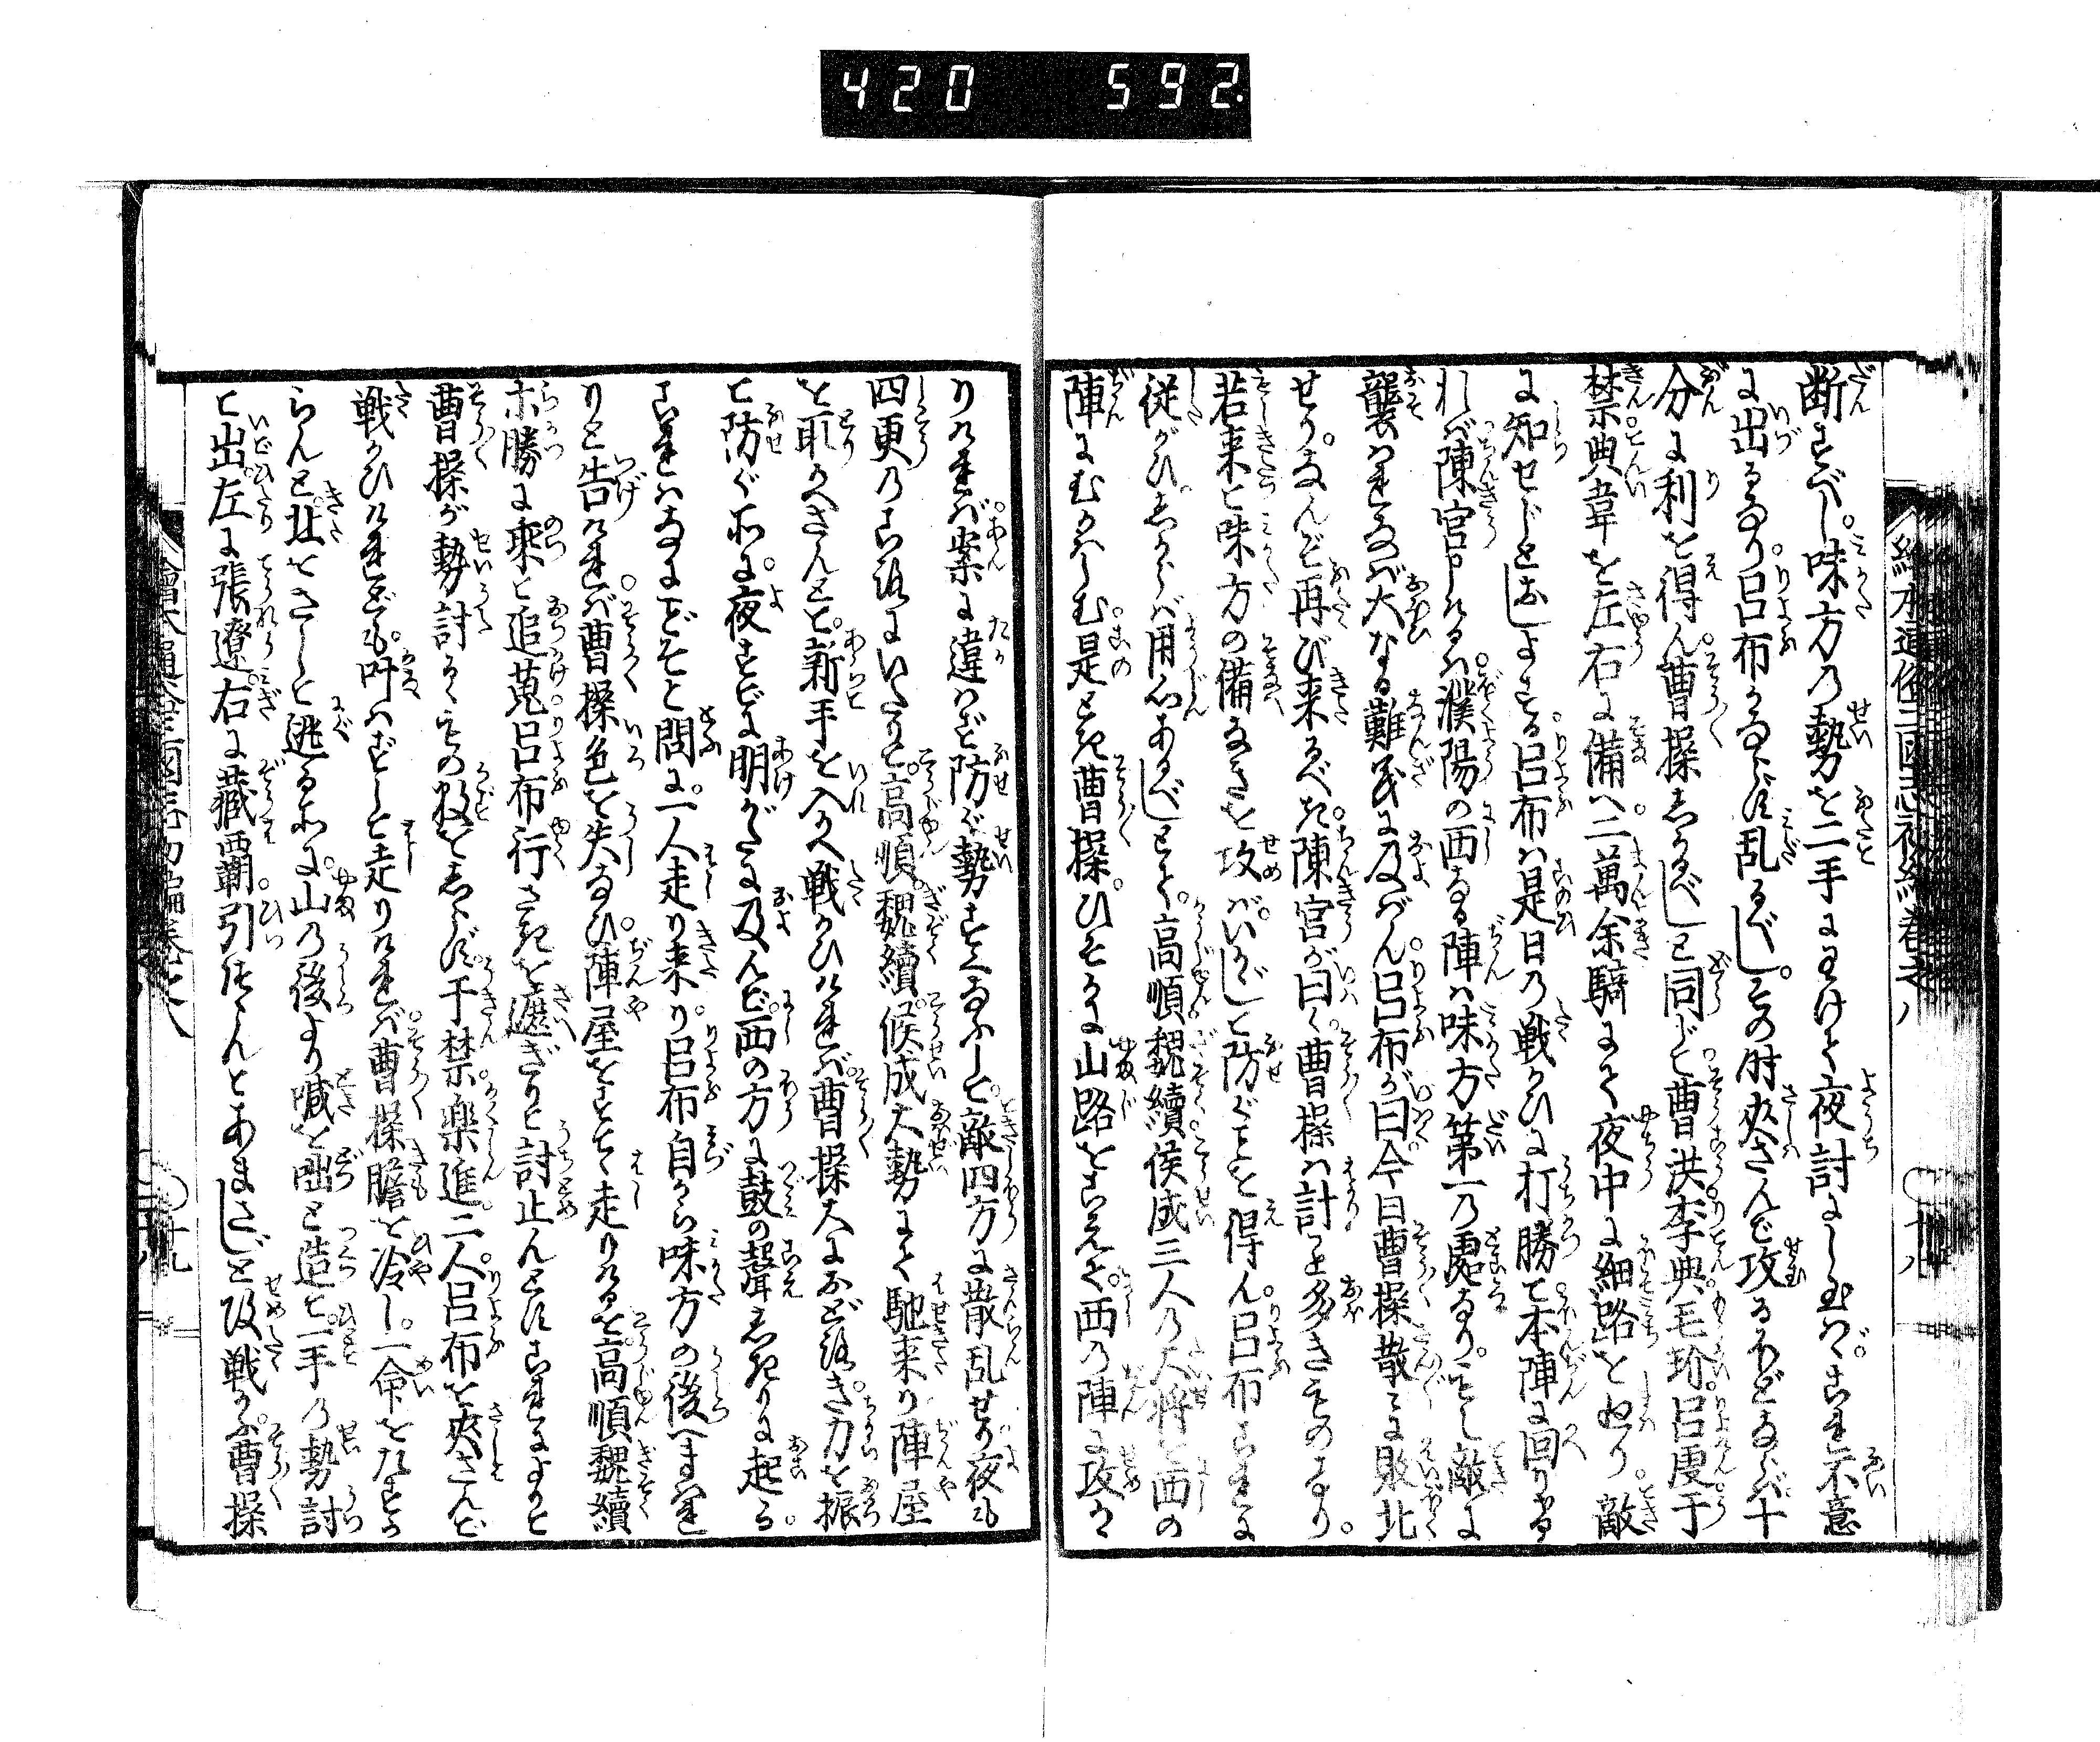 420 592.
繪本通俗三國志初編巻之八
断すべし味方の勢を二手にわけて夜討にしむバこれ不意
に出るなり呂布かならず乱るべしその时夾さんで攻るほどならバ十
分に利を得ん曹操しかるべしと同じて曹洪李典毛玠呂虔于
禁典韋を左右に備へ二萬余騎にて夜中に細路をめぐり敵
に知せじとしよする呂布ハ是日の戦ひに打勝て本陣に回りける
れバ陳宮申しけるハ濮陽の西なる陣ハ味方第一の處なりもし敵に
襲ハれなバ大なる難義に及バん呂布が曰今日曹操散〻に敗北
せりなんぞ再び来るべき陳宮が曰く曹操ハ計こと多きものなり
若来て味方の備なきを攻バいかゞして防ぐことを得ん呂布これに
従がひしからバ用心あるべしとて高順魏續侯成三人の大将を西の
陣にむかハしむ是とき曹操ひそかに山路をこえて西の陣に攻か
りけれバ案に違ハず防ぐ勢すくなふして敵四方に散乱せり夜も
四更のころにいたりて高順魏續侯成大勢にて馳来り陣屋
を取かへさんとて新手を入かへ戦かひけれバ曹操大におどろき力を振
て防ぐ所に夜すでに明がたに及んで西の方に鼓の聲しきりに起る
これハなにごとぞと問に一人走り来り呂布自から味方の後へまハれ
りと告けれバ曹操色を失なひ陣屋をすてゝ走りけるを高順魏續
ホ勝に乘て追蒐呂布行さきを遮ぎりて討止んとすこれによつて
曹操が勢討るゝもの数をしらず于禁樂進二人呂布を夾さんで
戦かひけれども叶ハずして走りけれバ曹操膽を冷し一命をたすか
らんと北をさして逃る所に山の後より喊を咄と造て一手の勢討
て出左に張遼右に藏覇引はさんとあまさじと攻戦かふ曹操
繪本通俗三國志初編巻之八